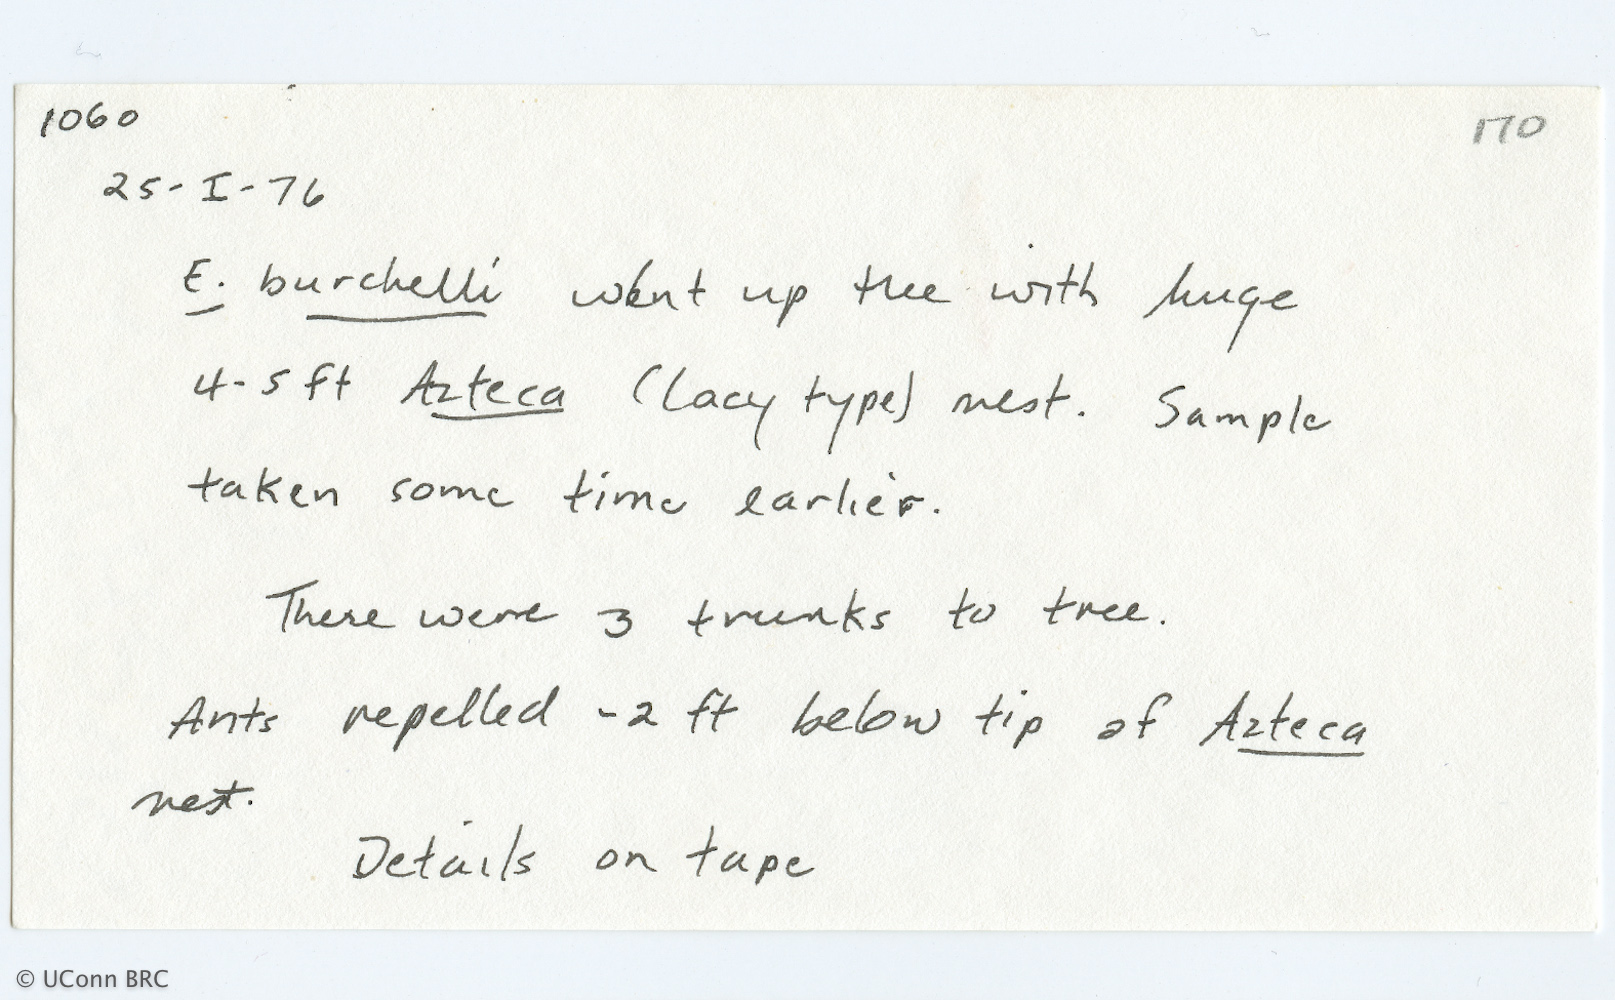 1060
170
25-I-76
E. burchelli went up tree with huge
4-5 ft Azteca (Lacy type) nest. Sample
taken some time earlier.
There were 3 trunks to tree.
Ants repelled ~2 ft below tip of Azteca
nest.
Details on tape
© UConn BRC